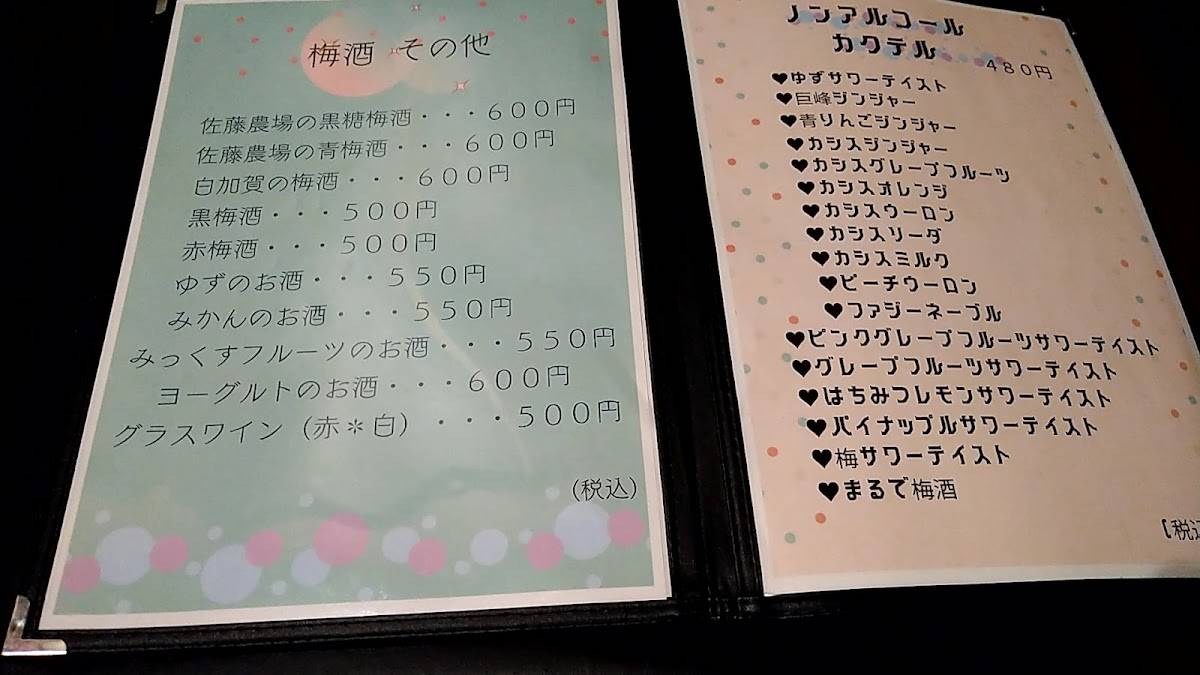 梅酒 その他
佐藤農場の黒糖梅酒・・・６００円
佐藤農場の青梅酒・・・６００円
白加賀の梅酒・・・６００円
黒梅酒・・・５００円
赤梅酒・・・５００円
ゆずのお酒・・・５５０円
みかんのお酒・・・５５０円
みっくすフルーツのお酒・・・５５０円
ヨーグルトのお酒・・・６００円
グラスワイン（赤＊白）・・・５００円
(税込)
ノンアルコール
カクテル
４８０円
♥ゆずサワーテイスト
♥巨峰ジンジャー
♥青りんごジンジャー
♥カシスジンジャー
♥カシスグレープフルーツ
♥カシスオレンジ
♥カシスウーロン
♥カシスソーダ
♥カシスミルク
♥ピーチウーロン
♥ファジーネーブル
♥ピンクグレープフルーツサワーテイスト
♥グレープフルーツサワーテイスト
♥はちみつレモンサワーテイスト
♥パイナップルサワーテイスト
♥梅サワーテイスト
♥まるで梅酒
【税込